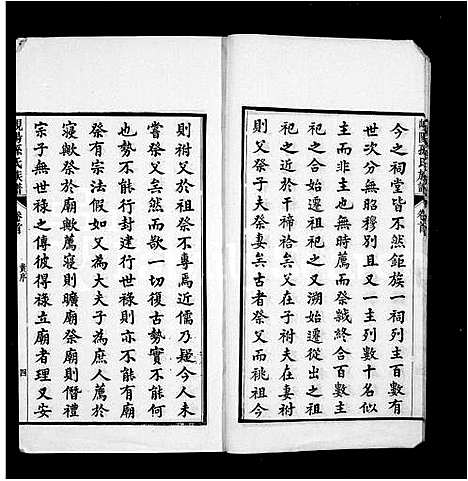 今之祠堂皆不然鉅族一祠列主百數有
世次分無昭穆別且又一主列數十名似
主而非主也無時薦而祭韱終合百數主
祭之始遷祖祀之又溯始遷從出之祖
祀之近於干禘祫矣父在子祔夫在妻祔
則父祭子夫祭妻矣古者祭父而祧祖今
則祔父於祖祭不專焉近儒乃疑今人未
嘗祭父矣然而欲一切復古勢實不能何
也勢不能行封建行世祿則亦不能有廟
祭有宗法假如又為大夫子為庶人薦於
寢歟祭於廟歟薦寢則曠廟祭廟則僭禮
宗子無世祿之傳彼得祿立廟者理又安
峴陽孫氏族譜
卷首
四